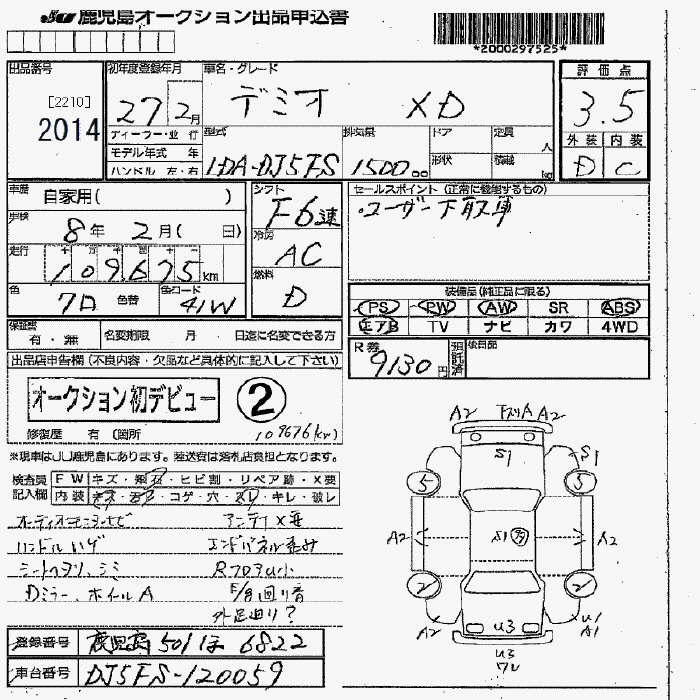 JU 鹿児島オークション出品申込書
*2000297525*
出品番号 初年度登録年月 車名・グレード 評価点
[2210] 27 2月 デミオ XD 3.5
2014
ディーラー・並 行 型式 排気量 ドア 定員 人 外装 内装
モデル年式 年 LDA-DJ5FS 1500cc 形状 積載 kg D C
ハンドル 左・右
車歴 自家用( ) シフト F6速 セールスポイント(正常に機能するもの)
・ユーザー下取車
車検 8年 2月( 日) 冷房 AC
走行 十 万 千 百 十 一 109675km 燃料 D
装備品(純正品に限る)
色 クロ 色替 色コード 41W PS PW AW SR ABS
エアB TV ナビ カワ 4WD
保証書 有・無 名変期限 月 日迄に名変できる方
R券 9130円 預託済 後日品
出品店申告欄(不良内容・欠品など具体的に記入して下さい)
オークション初デビュー ②
修復歴 有 (箇所 109676km)
※現車はJU鹿児島にあります。陸送費は落札店負担となります。
検査員 FW キズ・飛石・ヒビ割・リペア跡・X要
記入欄 内装 キズ・汚れ・コゲ・穴・スレ・キレ・破レ
アンテナX要
ハンドルハゲ エンドパネル歪み
シートヘタリ、シミ
Dミラー、ホイルA F/8回り音
外足廻り?
A2 下スリA A2
S1 S1
5 5
A2 S1 A2
2 2
A2 U3 U1
A1
U3
ワレ
登録番号 鹿児島 501 ほ 6822
車台番号 DJ5FS-120059